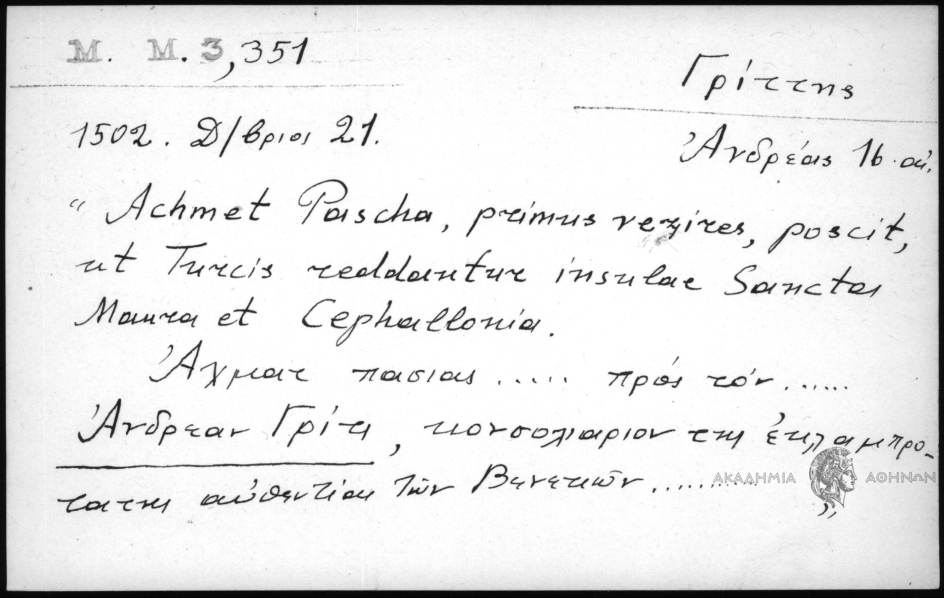 M. M. 3, 351
Γρίττης
1502. Δ/βριος 21.
Ἀνδρέας 16 αἰ.
“Achmet Pascha, primus vezires, poscit,
ut Turcis reddantur insulae Sancta
Maura et Cephallonia.
Ἀχματ πασιας ..... πρός τόν ......
Ἀνδρεαν Γρίτι, κονσολιαριον της ἐκλαμπρο-
τατης αὐθεντίας τῶν Βενετιῶν .........”
ΑΚΑΔΗΜΙΑ ΑΘΗΝΩΝ